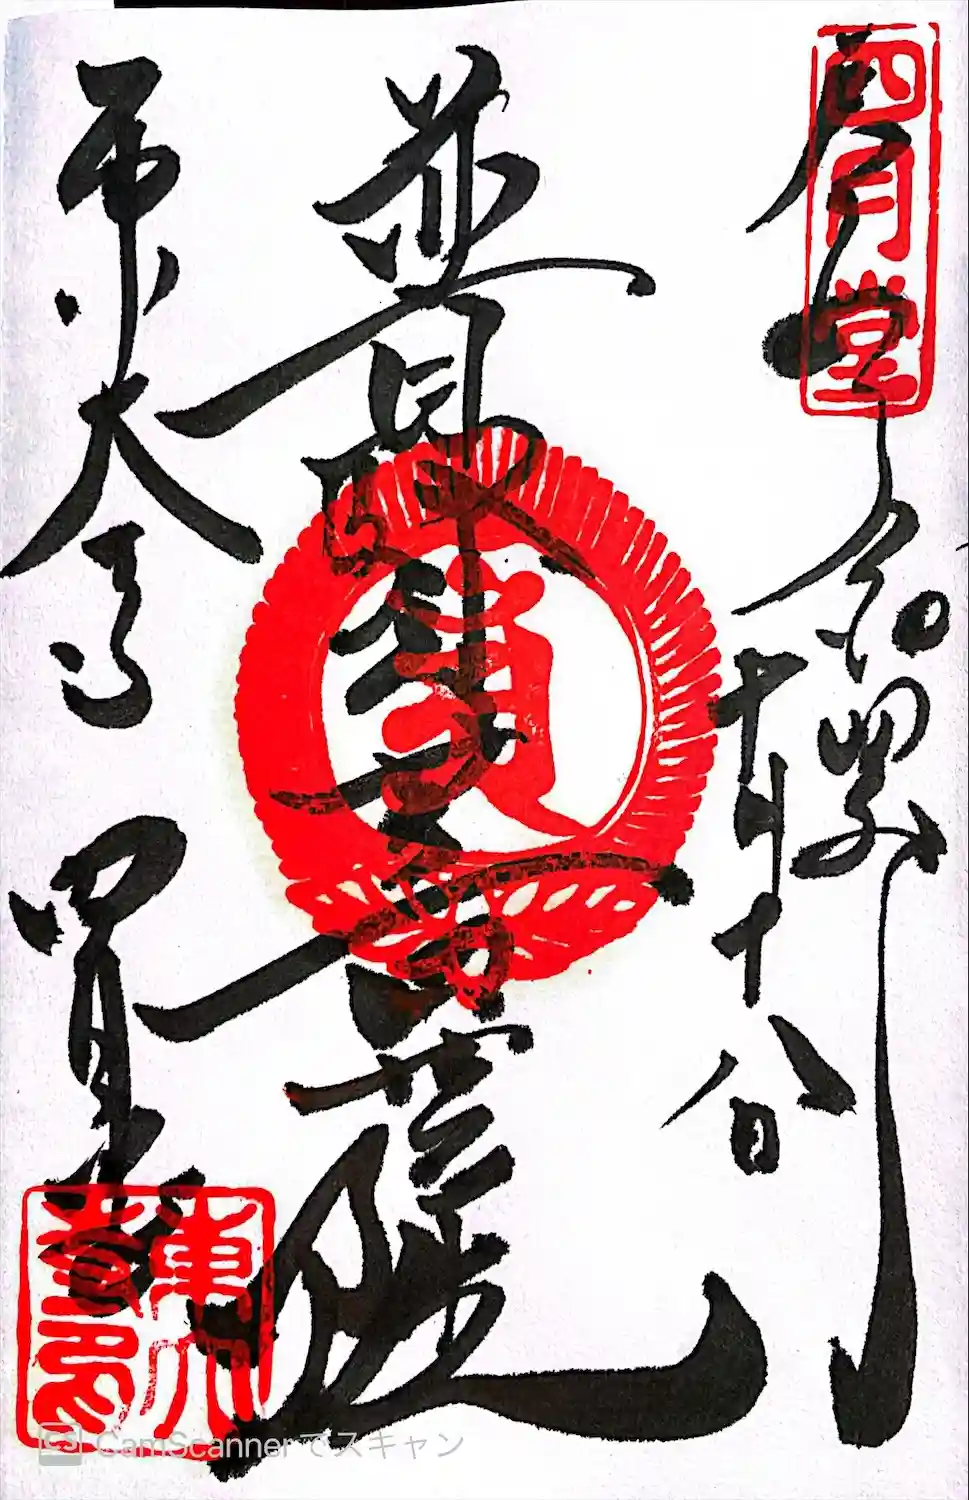 四月堂
奉拝
令和四年
十月十八日
普賢菩薩
東大寺
四月堂
CS CamScannerでスキャン